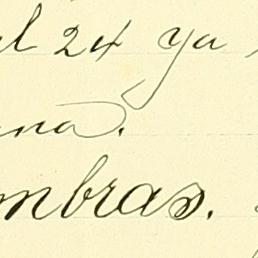 el 24 ya
ina.
mbras.